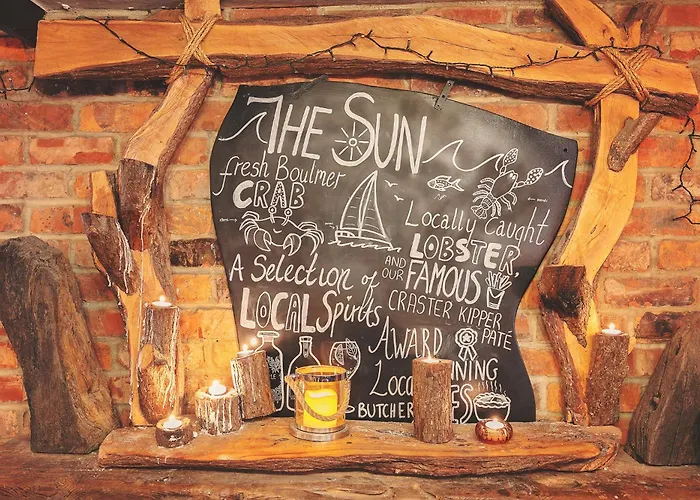 THE SUN
fresh Boulmer
CRAB
A Selection of
LOCAL Spirits
Locally Caught
LOBSTER,
AND OUR FAMOUS
CRASTER KIPPER
PATÉ
AWARD
NING
Loca
BUTCHER ES